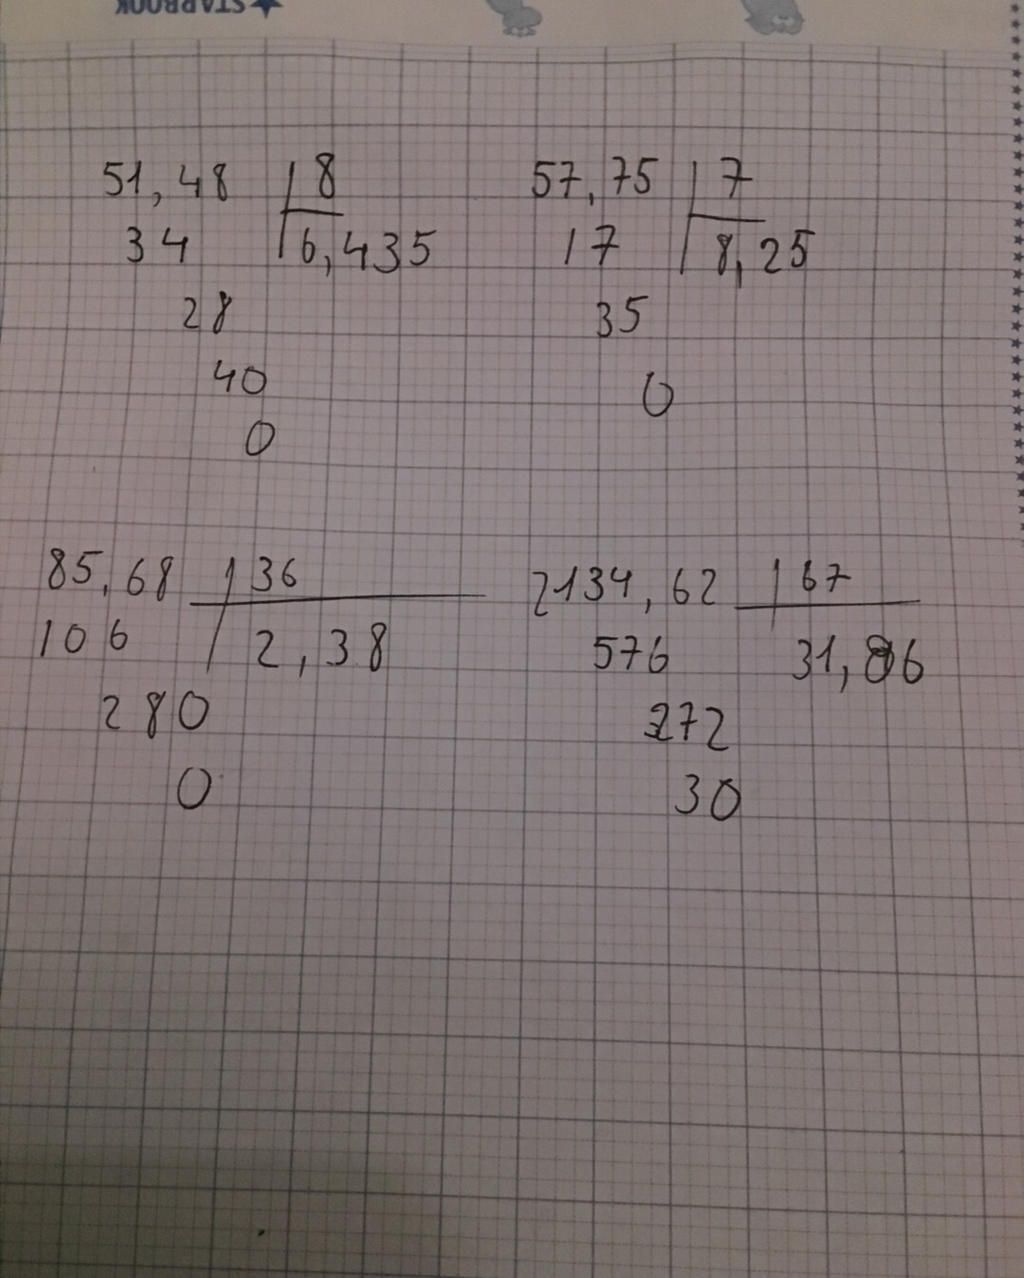 STARBOOK
51,48 | 8
34 | 6,435
28
40
0
57,75 | 7
17 | 8,25
35
0
85,68 | 36
106 | 2,38
280
0
2134,62 | 67
576 31,86
272
30